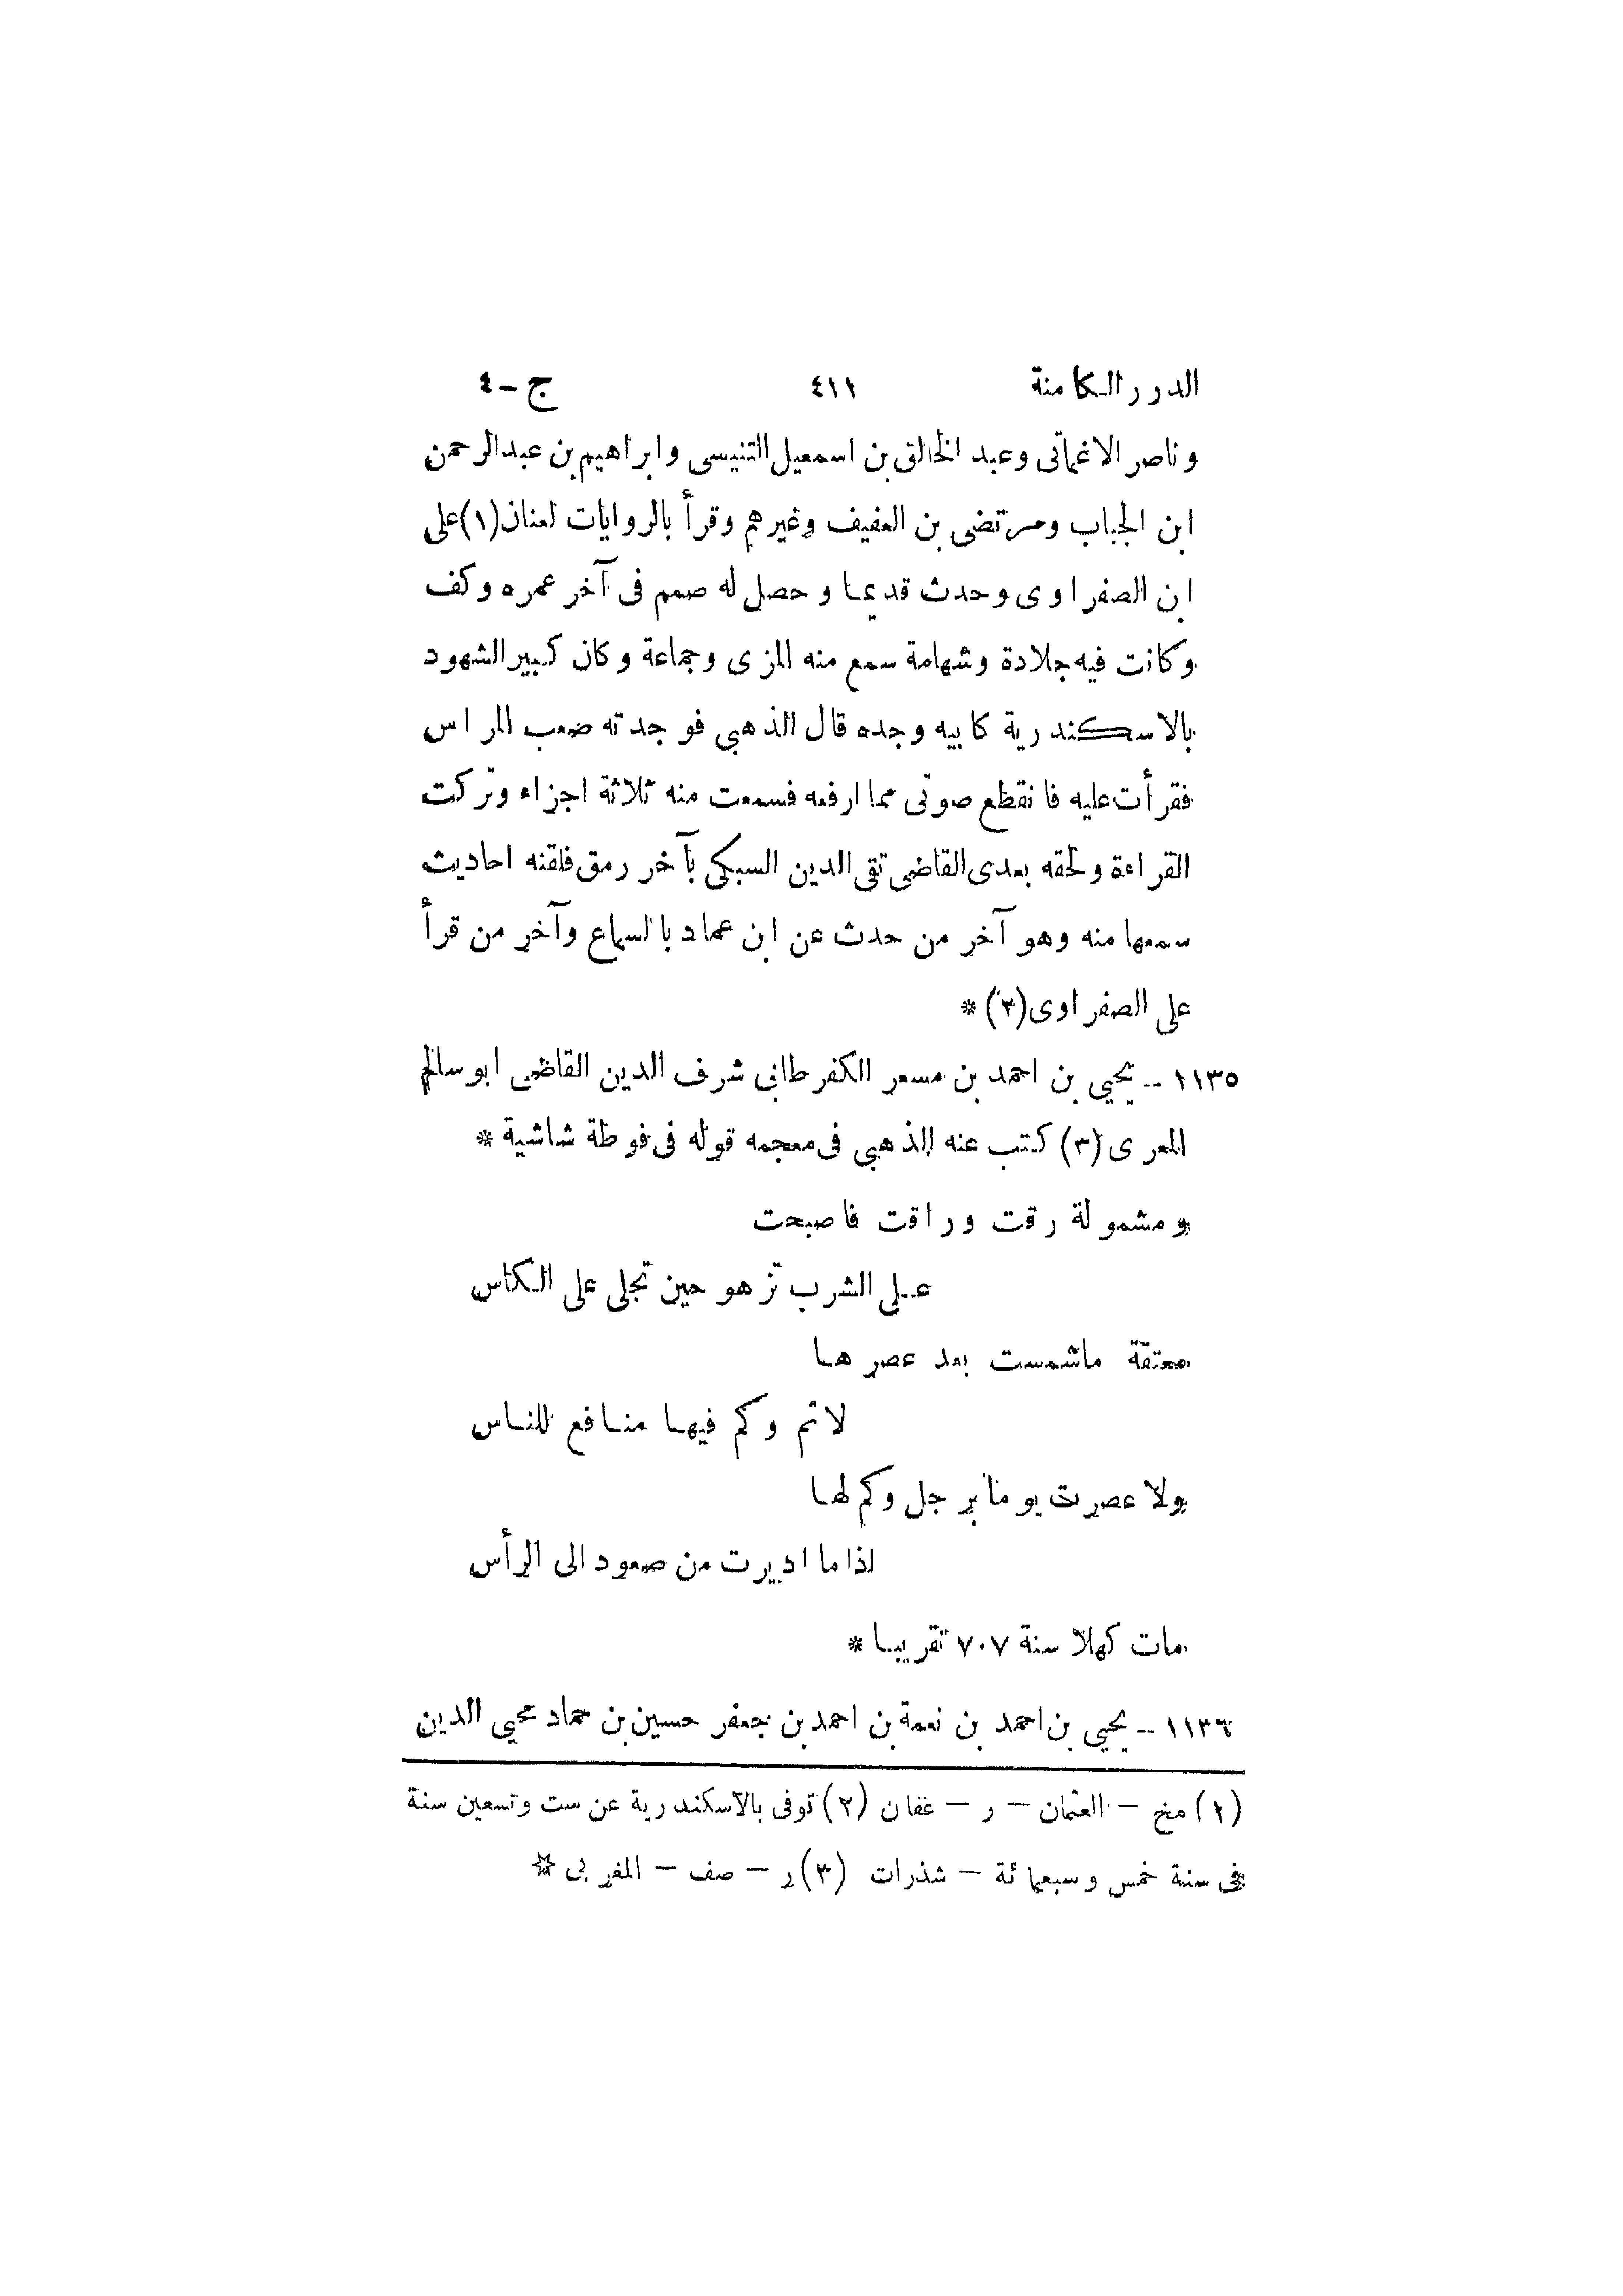 الدرر الكامنة ٤١١ ج-٤
وناصر الاغماتى وعبد الخالق بن اسمعيل التنيسى وابراهيم بن عبد الرحمن
ابن الجباب ومرتضى بن العفيف وغيرهم وقرأ بالروايات لعنان(١)على
ابن الصفراوى وحدث قديما وحصل له صمم فى آخر عمره وكف
وكانت فيه جلادة وشهامة سمع منه المزى وجماعة وكان كبير الشهود
بالاسكندرية كابيه وجده قال الذهبي فوجدته صعب المراس
فقرأت عليه فانقطع صوتى مما ارفعه فسمعت منه ثلاثة اجزاء وتركت
القراءة ولحقه بعدى القاضى تقى الدين السبكى بآخر رمق فلقنه احاديث
سمعها منه وهو آخر من حدث عن ابن عماد بالسماع وآخر من قرأ
على الصفراوى(٢)*
١١٣٥ -- يحيي بن احمد بن مسعر الكفرطابى شرف الدين القاضى ابو سالم
المعرى (٣) كتب عنه الذهبي فى معجمه قوله فى فوطة شاشية *
ومشمولة رقت وراقت فاصبحت
على الشرب تزهو حين تجلى على الكاس
معتقة ماشمست بعد عصرها
لاثم وكم فيها منافع للناس
ولا عصرت يوما برجل وكم لها
اذا ما اديرت من صعود الى الرأس
مات كهلا سنة ٧٠٧ تقريبا *
١١٣٦ -- يحيي بن احمد بن نعمة بن احمد بن جعفر حسين بن حماد محيي الدين
(١) مخ - العثمان - ر - غفان (٢) توفى بالاسكندرية عن ست وتسعين سنة
فى سنة خمس وسبعمائة - شذرات (٣) ر - صف - المغربى *